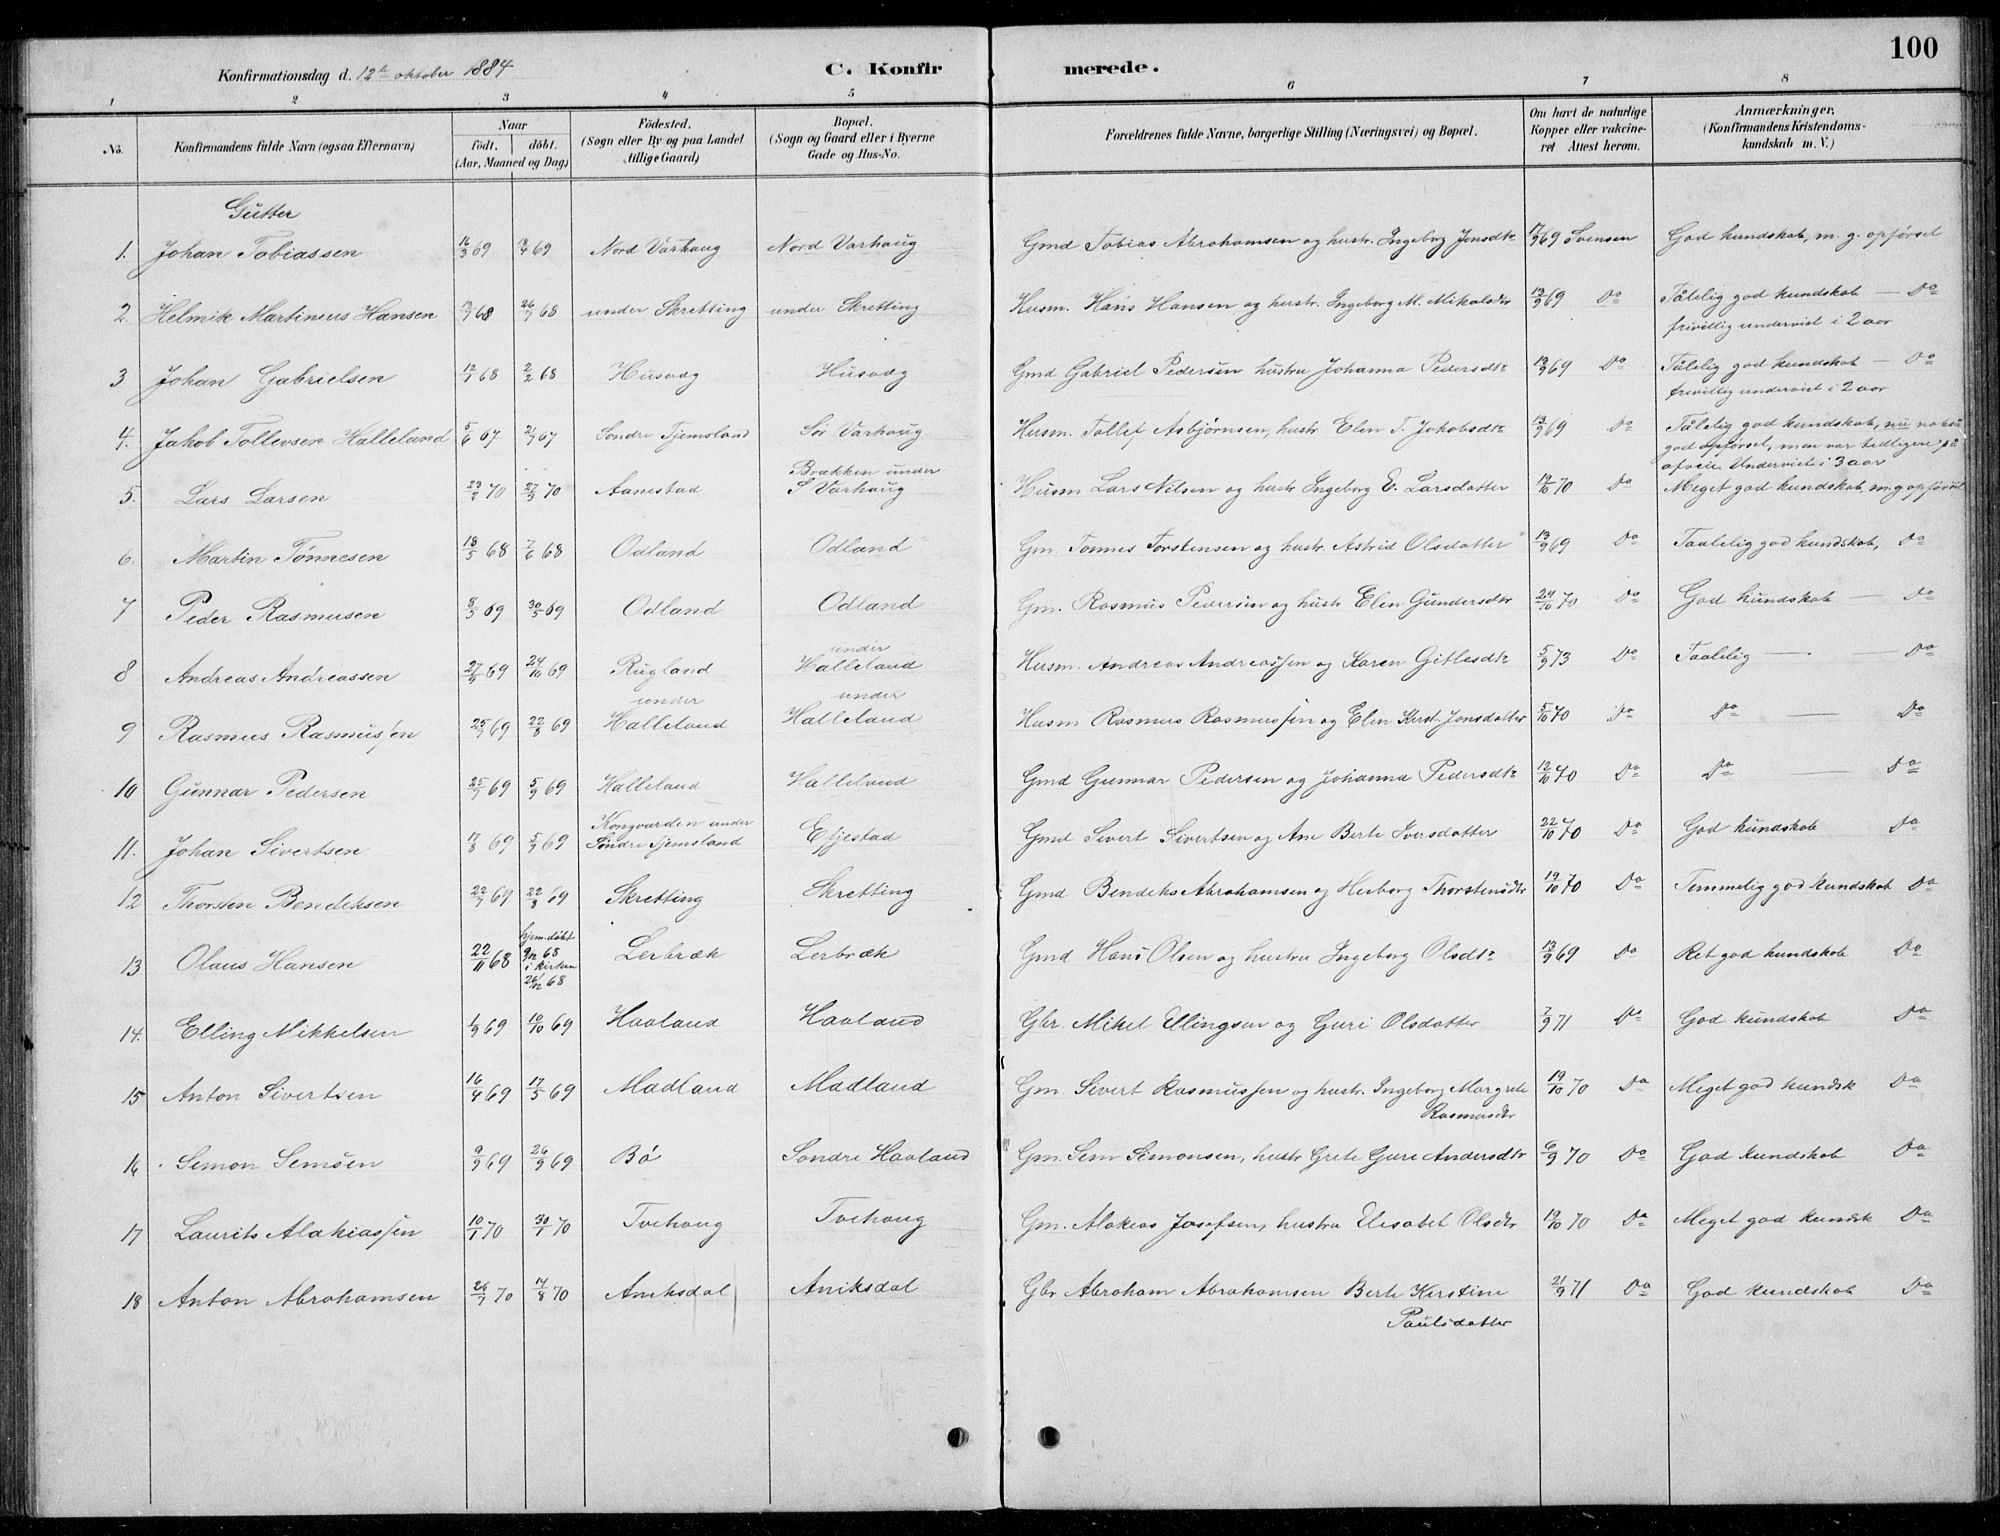 100
Konfirmationsdag d. 12te oktober 1884
C. Konfirmerede.
1 2 3 4 5 6 7 8
No. | Konfirmandens fulde Navn (ogsaa Efternavn) | Naar födt. döbt. (Aar, Maaned og Dag) | Födested. (Sogn eller By og paa Landet tillige Gaard) | Bopæl. (Sogn og Gaard eller i Byerne Gade og Hus-No. | Forældrenes fulde Navne, borgerlige Stilling (Næringsvei) og Bopæl. | Om havt de naturlige Kopper eller vakcineret Attest herom. | Anmærkninger. (Konfirmandens Kristendomskundskab m. V.)
Gutter
1. Johan Tobiassen | 16/3 69 | 18/4 69 | Nord Varhaug | Nord Varhaug | Gmd Tobias Abrahamsen og hustr. Ingeborg Jonsdtr | 17/9 69 Svensen | God kundskab, m. g. opførsel
2. Helmik Martineus Hansen | 13/7 68 | 26/7 68 | under Skretting | under Skretting | Husm. Hans Hansen og hustr. Ingeborg M. Mikalsdtr | 13/9 69 Do | Tålelig god kundskab — Do
frivillig undervist i 2 aar
3 Johan Gabrielsen | 12/1 68 | 2/2 68 | Husvæg | Husvæg | Gmd Gabriel Pedersen hustru Johanna Pedersdtr | 13/9 69 Do | Tålelig god kundskab — Do
frivillig undervist i 2 aar
4. Jakob Tollevsen Halleland | 5/6 67 | 21/7 67 | Söndre Tjemsland | Sör Varhaug | Husm. Tollef Asbjørnsen, hustr Elen T. Jakobsdtr | 13/9 69 Do | Tålelig god kundskab, nu nokså
god opførsel, men var tidligere på
afveie. Undervist i 3 aar
5. Lars Larsen | 23/2 70 | 27/3 70 | Aanestad | Brækken under
S Varhaug | Husm Lars Nilsen og hustr Ingeborg E. Larsdatter | 19/10 70 Do | Meget god kundskab, m. g opførsel
6. Martin Tönnesen | 18/5 68 | 7/6 68 | Odland | Odland | Gm. Tönnes Torstensen og hustr. Astrid Olsdatter | 13/9 69 Do | Taalelig god kundskab, Do
7 Peder Rasmusen | 8/5 69 | 30/5 69 | Odland | Odland | Gm. Rasmus Pedersen og hustr Elen Gundersdtr | 24/10 70 Do | God kundskab — Do
8 Andreas Andreassen | 27/9 69 | 24/10 69 | Rugland | under
Halleland | Husm. Andreas Andreassen og Karen Gitlesdtr | 5/9 73 Do | Taalelig — Do
9 Rasmus Rasmussen | 25/7 69 | 22/8 69 | under
Halleland | under
Halleland | Husm Rasmus Rasmussen og Elen Kirst. Jonsdatter | 5/10 70 Do | Do — Do
10 Gunnar Pedersen | 25/7 69 | 5/9 69 | Halleland | Halleland | Gmd Gunnar Pedersen og Johanna Pedersdtr | 12/10 70 Do | Do — Do
11. Johan Sivertsen | 17/8 69 | 5/9 69 | Kongvarden under
Söndre Tjemsland | Efjestad | Gmd Sivert Sivertsen og Ane Berte Iversdatter | 22/10 70 Do | God kundskab Do
12 Thorsten Bendiksen | 22/7 69 | 22/8 69 | Skretting | Skretting | Gmd Bendiks Abrahamsen og Herborg Thorstensdtr | 19/10 70 Do | Temmelig god kundskab Do
13 Olaus Hansen | 22/11 68 | hjem. døbt
9/12 68
i kirken
26/12 68 | Lerbræk | Lerbræk | Gmd Hans Olsen og hustru Ingeborg Olsdtr | 13/9 69 Do | Ret god kundskab Do
14. Elling Mikkelsen | 1/9 69 | 10/10 69 | Haaland | Haaland | Gbr. Mikel Ellingsen og Guri Olsdatter | 7/9 71 Do | God kundskab Do
15 Anton Sivertsen | 16/4 69 | 17/5 69 | Madland | Madland | Gm. Sivert Rasmussen og hustr. Ingeborg Margrete
Rasmusdtr | 19/10 70 Do | Meget god kundsk Do
16 Semon Semsen | 9/9 69 | 26/9 69 | Bö | Söndre Haaland | Gm. Sem Simonsen, hustr Grete Guri Andersdtr | 6/9 70 Do | God kundskab Do
17 Laurits Alakiassen | 10/1 70 | 30/1 70 | Tvihaug | Tvihaug | Gm. Alakias Josefsen, hustru Elisabet Olsdtr | 19/10 70 Do | Meget god kundsk Do
18 Anton Abrahamsen | 26/7 70 | 14/8 70 | Aniksdal | Aniksdal | Gbr Abraham Abrahamsen Berte Kirstine
Paulsdatter | 21/9 71 Do | God kundskab Do